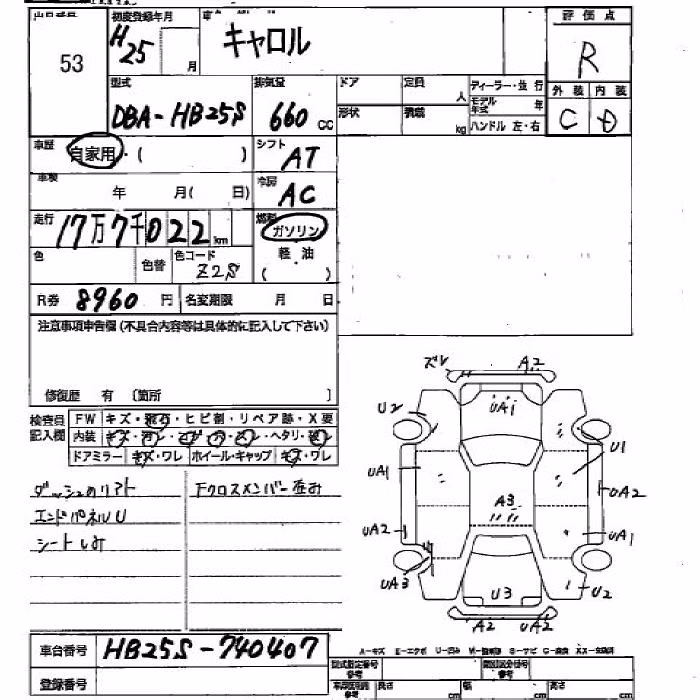 53
初度登録年月
H25
月
キャロル
評価点
R
型式
DBA-HB25S
排気量
660 cc
ドア
定員
人
形状
積載
kg
ディーラー・並行
モデル年式
年
ハンドル 左・右
外装 内装
C D
車歴
自家用・( )
シフト
AT
車検
年 月( 日)
冷房
AC
走行
17万7千022km
燃料
ガソリン
軽油
( )
色
色替
色コード
Z2S
R券 8960 円
名変期限 月 日
注意事項申告欄(不具合内容等は具体的に記入して下さい)
修復歴 有 〔箇所 〕
検査員記入欄
FW キズ・飛石・ヒビ割・リペア跡・X要
内装
ヘタリ
ドアミラー キズ・ワレ ホイール・キャップ キズ・ワレ
Fクロスメンバー歪み
エンドパネルU
シートしみ
ズレ A2
U2 UA1
U1
UA1
UA2
A3
UA2
UA1
UA3
U3
U2
A2 UA2
車台番号 HB25S-740407
登録番号
A-キズ E-エクボ U-凹み
型式指定番号
類別区分番号
長さ cm
幅 cm
高さ cm